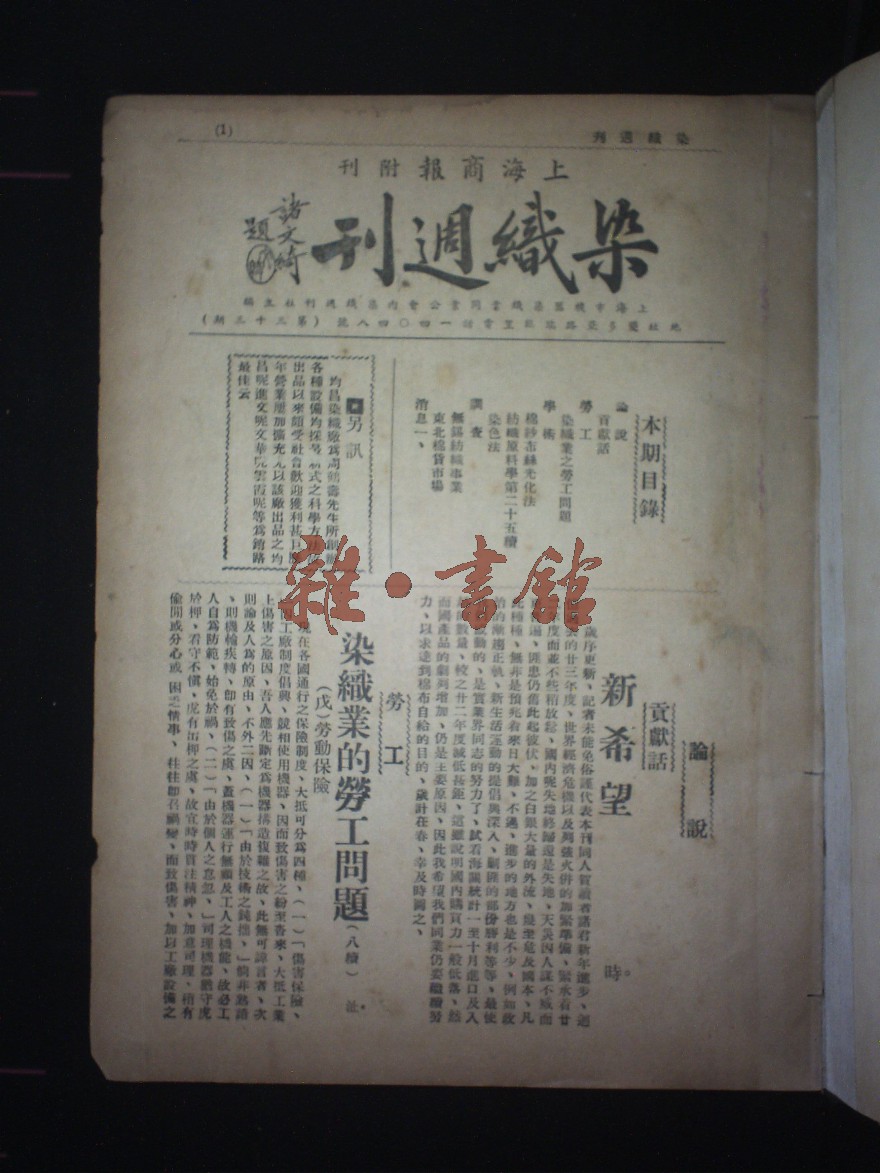 染織週刊
(1)
上海商報附刊
染織週刊
諸文綺
題
上海市機器染織業同業公會內染織週刊社主編
地址愛多亞路 電話一四〇四八號 (第三十三期)
本期目錄
論說
貢獻話
勞工
染織業之勞工問題
學術
棉紗布絲光化法
紡織原料學第二十五續
染色法
調查
無錫紡織事業
東北棉貨市場
消息一、
另訊
均昌染織廠為 先生所創辦
各種設備均採 新式之科學方法
出品以來頗受社會歡迎獲利甚
年營業屢加擴充尤以該廠出品之均
昌呢進文呢文華呢雲霞呢等為銷路
最佳云
論說
貢獻話
新希望
時。
歲序更新、記者未能免俗謹代表本刊同人賀讀者諸君新年進步、迴
的廿三年度、世界經濟危機以及列強火併的加緊準備、緊承着廿
度而並不些稍放鬆、國內呢失地終歸還是失地、天災因人謀不臧而
匪患仍舊此起彼伏、加之白銀大量的外流、幾至危及國本、凡
此種種、無非是預兆着來日大難、不過、進步的地方也是不少、例如政
治的漸趨正軌、新生活運動的提倡與深入、剿匪的部份勝利等等、最使
的、是實業界同志的努力了、試看海關統計一至十月進口及入
的數量、較之廿二年度減低甚鉅、這雖說明國內購買力一般低落、然
而國產品的劇烈增加、仍是主要原因、因此我希望我們同業仍要繼續努
力、以求達到棉布自給的目的、歲計在春、幸及時圖之、
勞工
染織業的勞工問題
(八續)
(戊)勞動保險
現在各國通行之保險制度、大抵可分為四種、(一)「傷害保險、
工廠制度倡興、競相使用機器、因而致傷害之紛至沓來、大抵工業
上傷害之原因、吾人應先斷定為機器構造複雜之故、此無可諱言者、次
則論及人為的原由、不外二因、(一)「由於技術之鈍拙、」倘非熟諳
、則機輪疾轉、即有致傷之虞、蓋機器運行無顧及工人之機能、故必工
人自為防範、始免於禍、(二)「由於個人之怠忽、」司理機器猶守虎
於柙、看守不慎、虎有出柙之虞、故宜時時貫注精神、加意司理、稍有
偷閒或分心或 困乏情事、往往即召禍變、而致傷害、加以工廠設備之
雜·書館